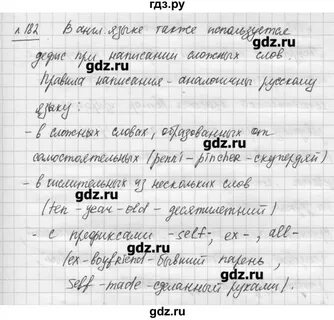 гдз.ру
№182 В англ. языке также используется
дефис при написании сложных слов.
Правила написания - аналогичны русскому
языку:
- в сложных словах, образованных от
самостоятельных (penni-pincher - скупердяй)
- в числительных из нескольких слов
(ten-year-old - десятилетний)
- с префиксами -self-, ex-, all-
(ex-boyfriend - бывший парень,
self-made - сделанный руками).
гдз.ру